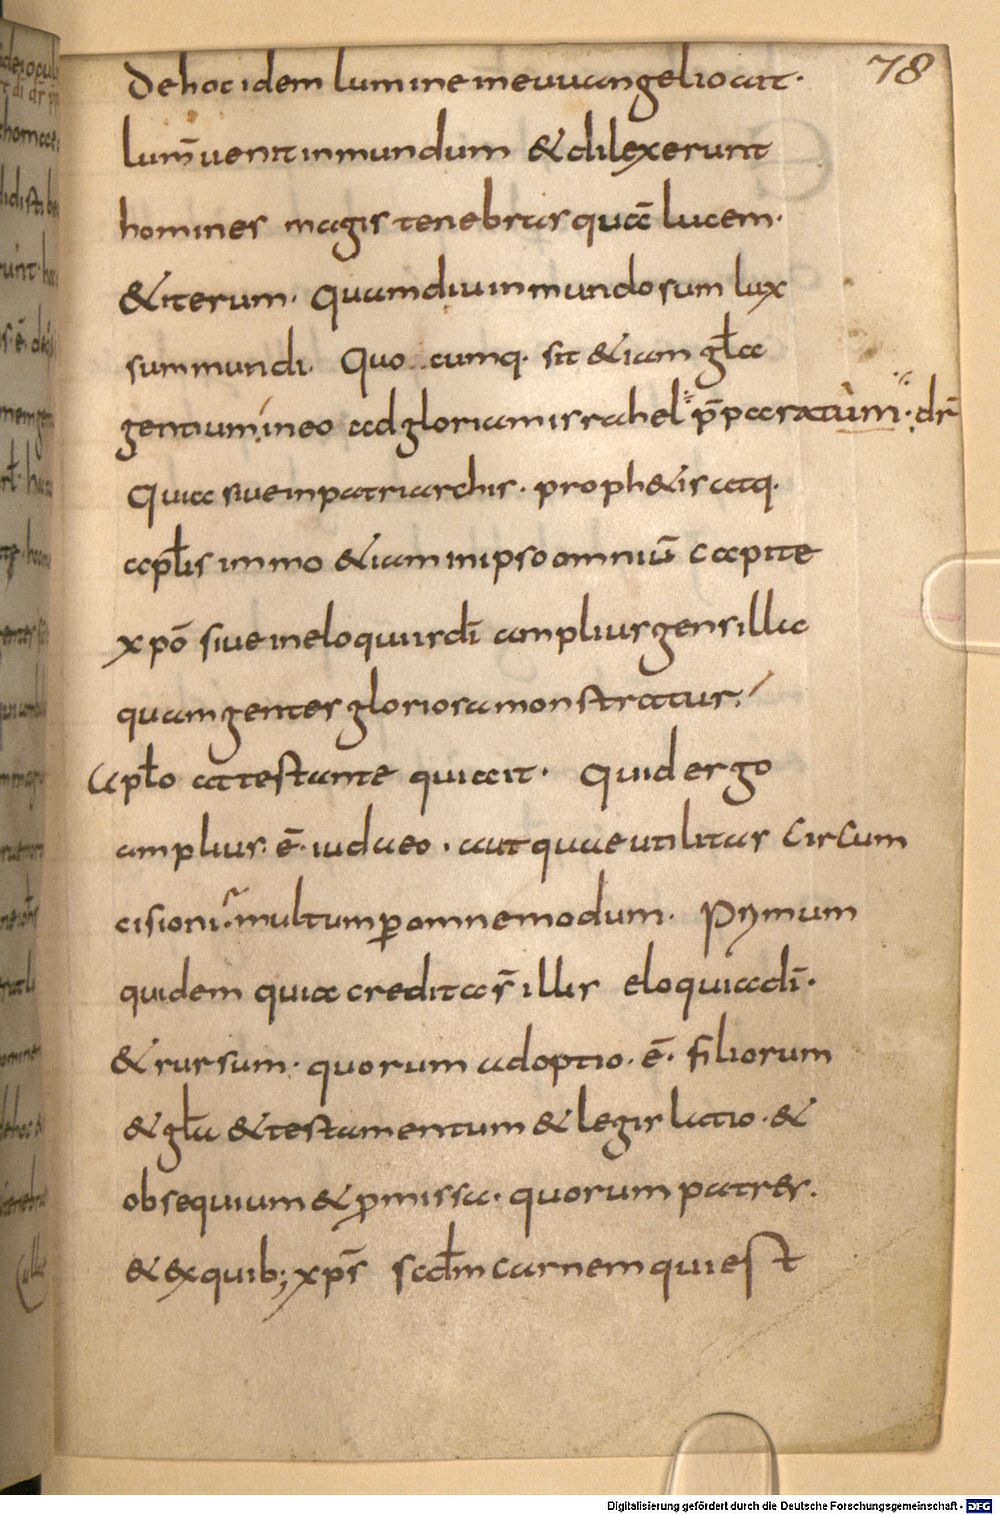 78
De hoc idem lumine in euuangelio ait·
lum̄ uenit in mundum & dilexerunt
homines magis tenebras quā lucem·
& iterum· Quamdiu in mundo sum lux
sum mundi· Quo cumq· sit & iam gl̄a
gentium in eo ad gloriam israhel p̄paratum· dr̄
Quia siue in patriarchis· proph&is atq·
apl̄is immo &iam in ipso omniū capite
xp̄o siue in eloquiis dī amplius gens illa
quam gentes gloriosa monstratur·
Apl̄o attestante qui ait· Quid ergo
amplius· ē· iudaeo· aut quae utilitas circum
cisioni· multum p̱ omnem modum· Primum
quidem quia credita s̄ illis eloquia dī·
& rursum· quorum adoptio· ē· filiorum
& gl̄a & testamentum & legis latio· &
obsequium & p̱missa· quorum patres·
& ex quib; xp̄s scd̄m carnem qui est
Digitalisierung gefördert durch die Deutsche Forschungsgemeinschaft - DFG